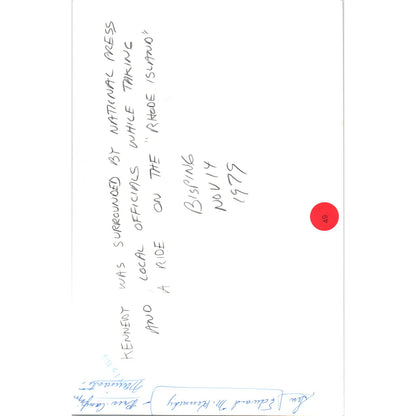 KENNEDY WAS SURROUNDED BY NATIONAL PRESS
AND LOCAL OFFICIALS WHILE TAKING
A RIDE ON THE "RHODE ISLAND"
BISPING
NOV 14
1979
49
Sen. Edward M. Kennedy -